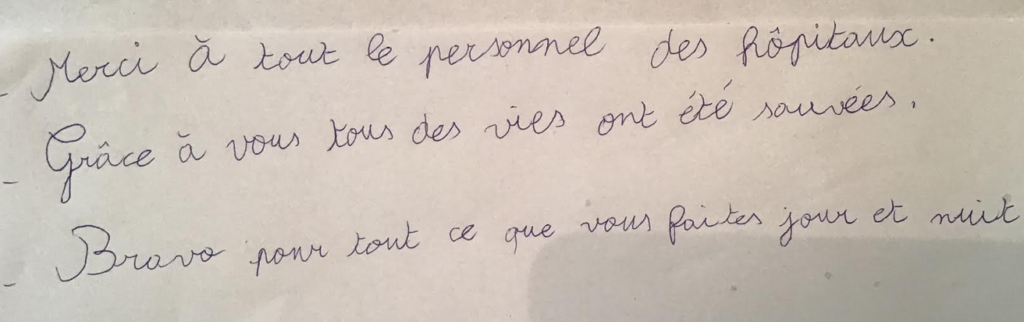 - Merci à tout le personnel des hôpitaux.
- Grâce à vous tous des vies ont été sauvées.
- Bravo pour tout ce que vous faites jour et nuit